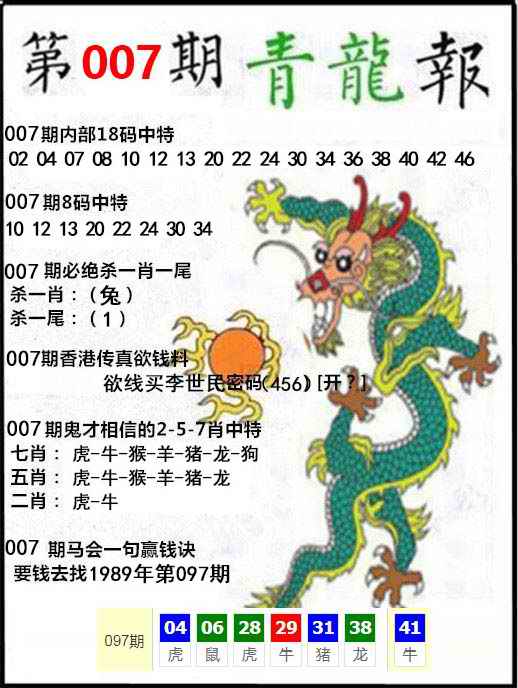 第007期青龍報
007期内部18码中特
02 04 07 08 10 12 13 20 22 24 30 34 36 38 40 42 46
007期8码中特
10 12 13 20 22 24 30 34
007 期必绝杀一肖一尾
杀一肖：(兔)
杀一尾：(1)
007期香港传真欲钱料
欲线买李世民密码(456) [开?]
007期鬼才相信的2-5-7肖中特
七肖：虎-牛-猴-羊-猪-龙-狗
五肖：虎-牛-猴-羊-猪-龙
二肖：虎-牛
007 期马会一句赢钱诀
要钱去找1989年第097期
097期 04 06 28 29 31 38 41
虎 鼠 虎 牛 猪 龙 牛